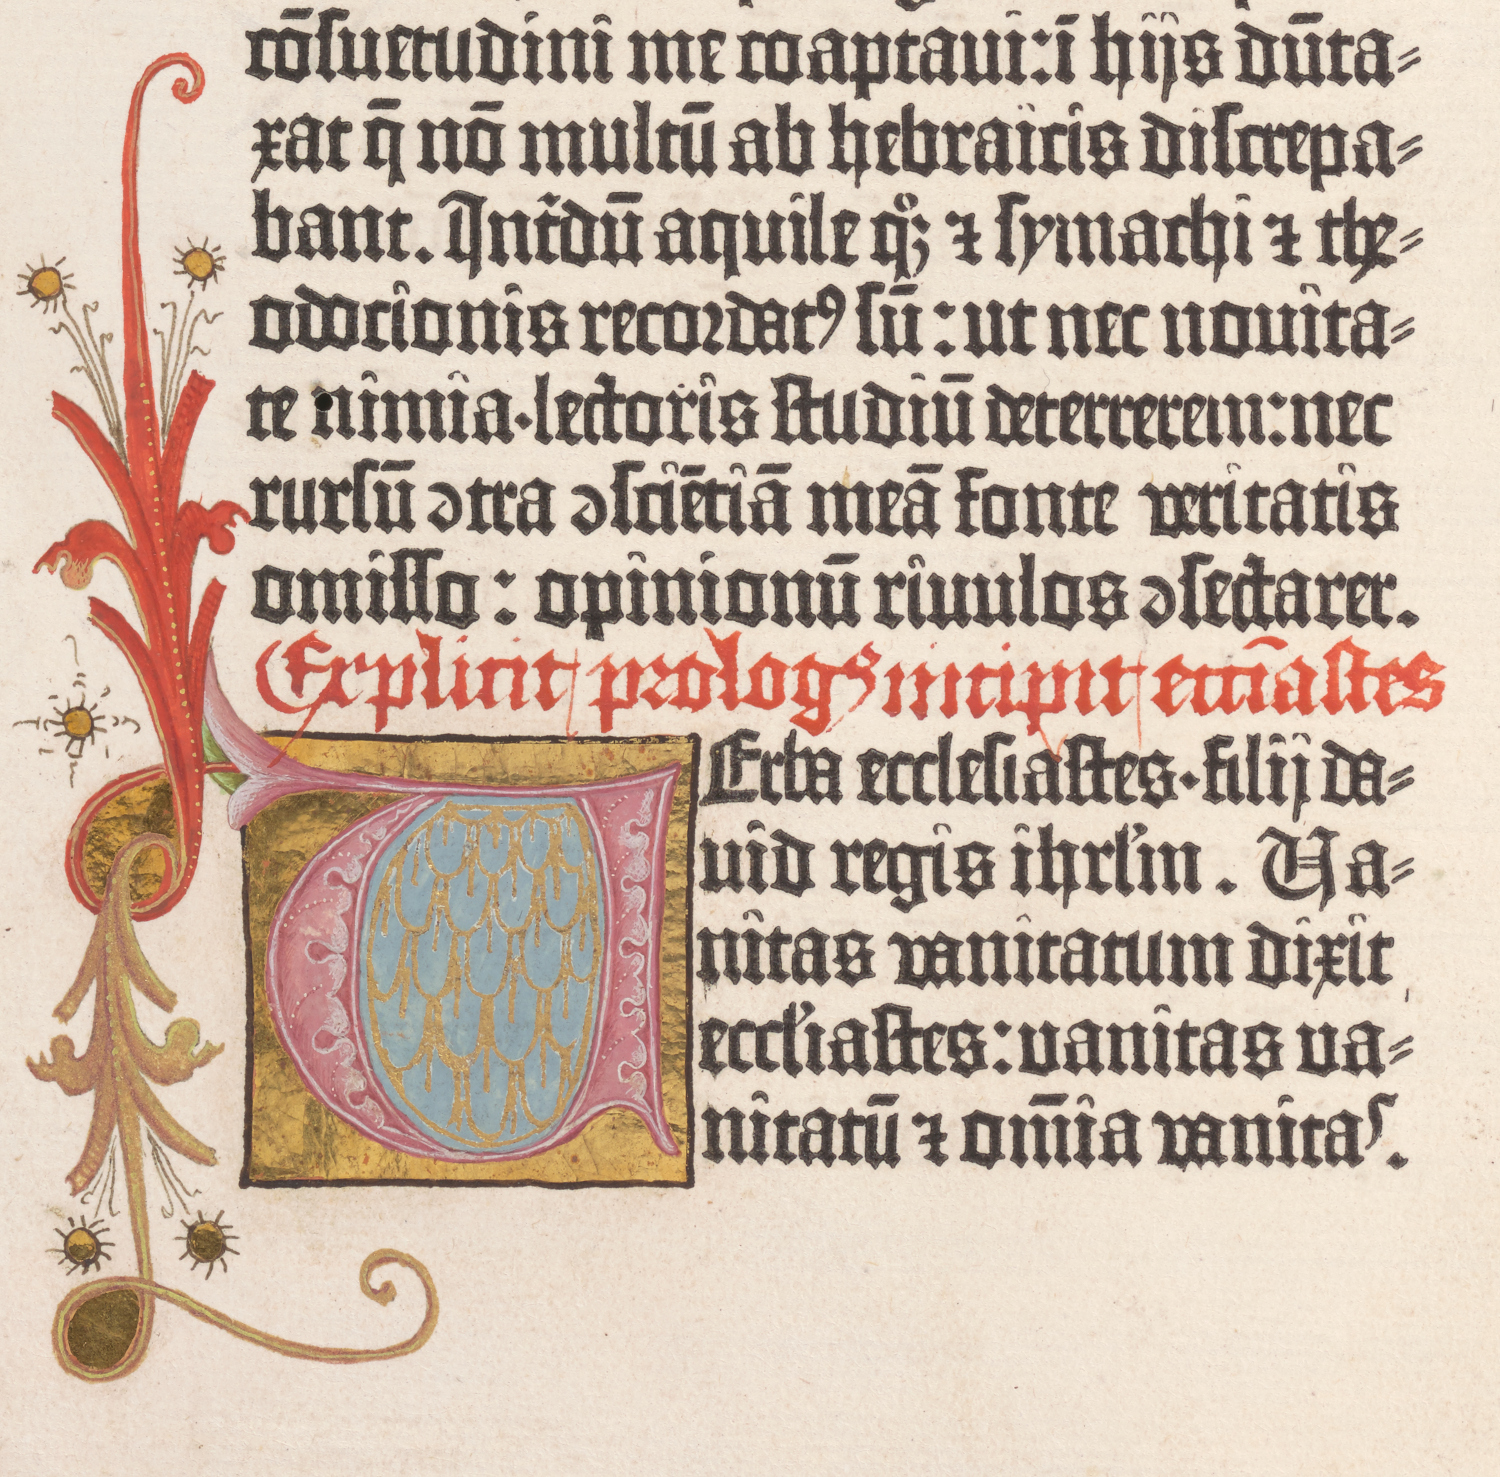 cōsuetudini me coaptaui: ī hijs dūta-
xat q̄ nō multū ab hebraicis discrepa-
bant. Int̄dū aquile qꝫ ⁊ symachi ⁊ the-
odocionis recordatꝰ sū: ut nec nouita-
te nimia lectoris studiū deterrerem: nec
rursū ꝯtra ꝯsciētiā meā fonte veritatis
omisso: opinionū riuulos ꝯsectarer.
Explicit prologꝰ incipit eccīastes
VErba ecclesiastes. filij da-
uid regis ihrl'm. Va-
nitas vanitatum dixit
eccl'iastes: vanitas va-
nitatū ⁊ om̄ia vanitas.